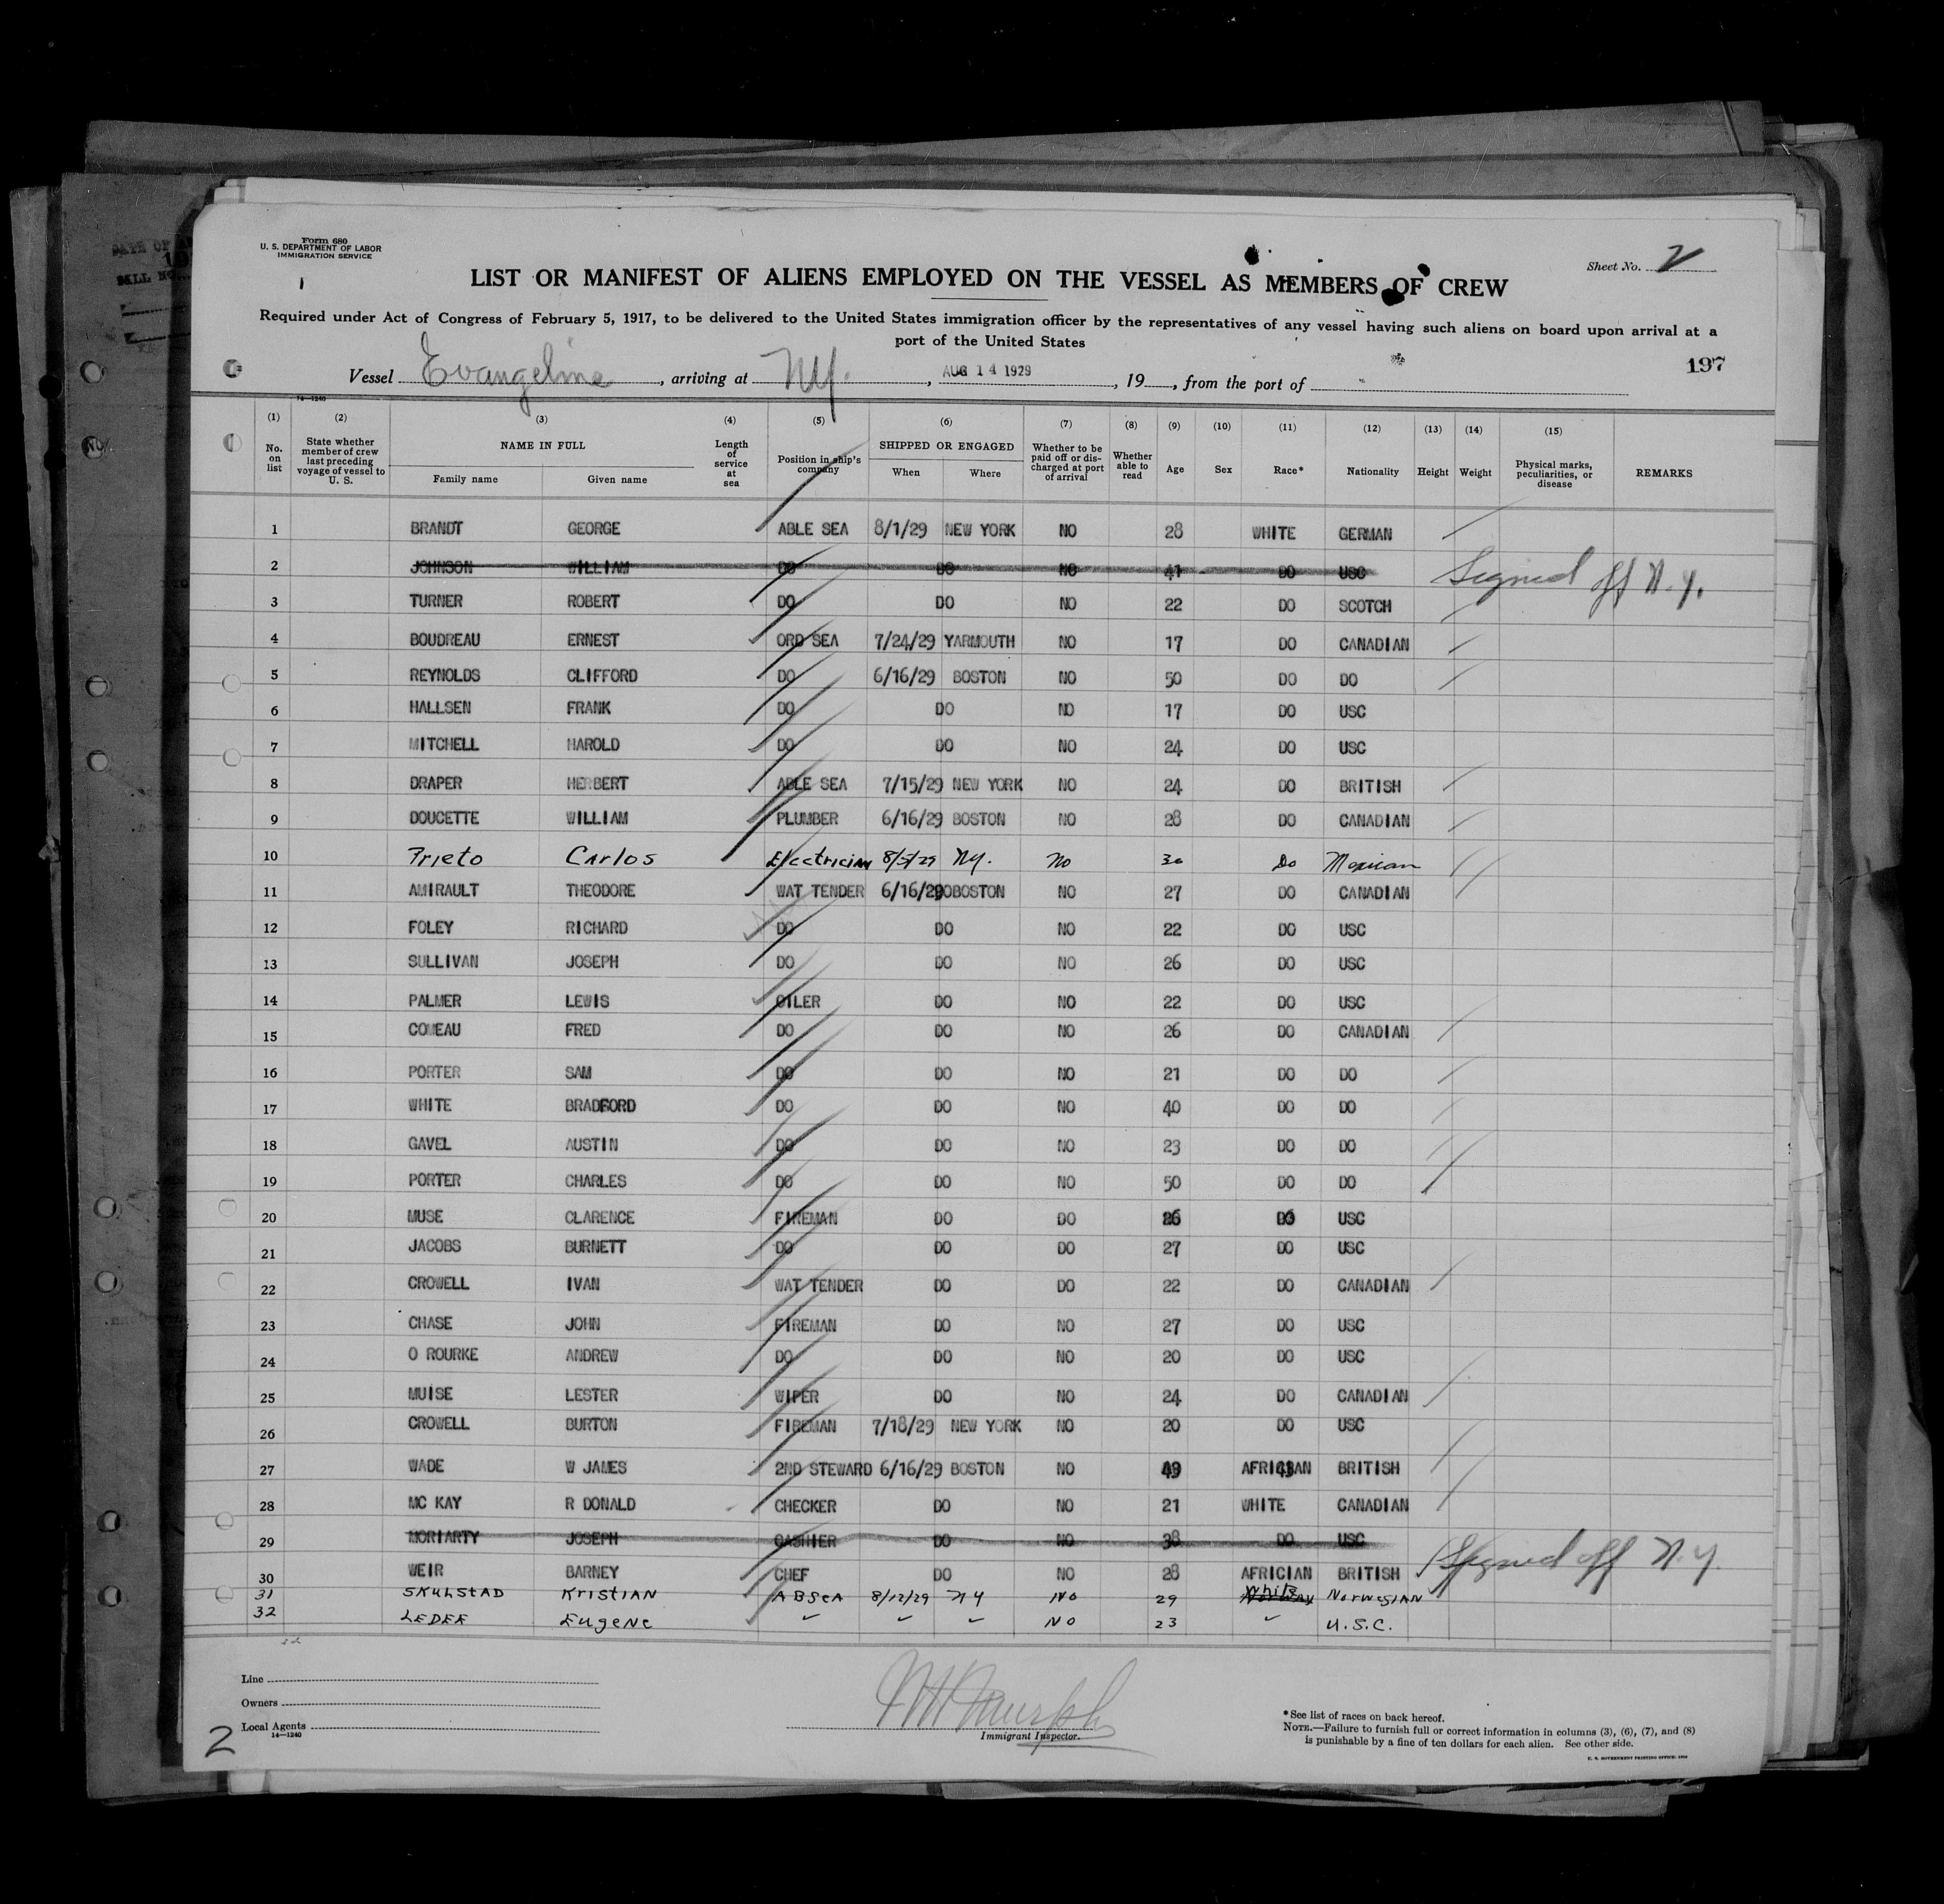 Form 680
U. S. DEPARTMENT OF LABOR
IMMIGRATION SERVICE
Sheet No. 2
LIST OR MANIFEST OF ALIENS EMPLOYED ON THE VESSEL AS MEMBERS OF CREW
Required under Act of Congress of February 5, 1917, to be delivered to the United States immigration officer by the representatives of any vessel having such aliens on board upon arrival at a
port of the United States
197
Vessel Evangeline, arriving at NY., AUG 14 1929, 19, from the port of
14—1240
(1) (2) (3) (4) (5) (6) (7) (8) (9) (10) (11) (12) (13) (14) (15)
No. on list State whether member of crew last preceding voyage of vessel to U. S. NAME IN FULL Family name Given name Length of service at sea Position in ship's company SHIPPED OR ENGAGED When Where Whether to be paid off or discharged at port of arrival Whether able to read Age Sex Race* Nationality Height Weight Physical marks, peculiarities, or disease REMARKS
1 BRANDT GEORGE ABLE SEA 8/1/29 NEW YORK NO 28 WHITE GERMAN
2 JOHNSON WILLIAM DO DO NO 41 DO USC Signed off N.Y.
3 TURNER ROBERT DO DO NO 22 DO SCOTCH
4 BOUDREAU ERNEST ORD SEA 7/24/29 YARMOUTH NO 17 DO CANADIAN
5 REYNOLDS CLIFFORD DO 6/16/29 BOSTON NO 50 DO DO
6 HALLSEN FRANK DO DO NO 17 DO USC
7 MITCHELL HAROLD DO DO NO 24 DO USC
8 DRAPER HERBERT ABLE SEA 7/15/29 NEW YORK NO 24 DO BRITISH
9 DOUCETTE WILLIAM PLUMBER 6/16/29 BOSTON NO 28 DO CANADIAN
10 Prieto Carlos Electrician 8/5/29 NY. No 30 Do Mexican
11 AMIRAULT THEODORE WAT TENDER 6/16/29 BOSTON NO 27 DO CANADIAN
12 FOLEY RICHARD DO DO NO 22 DO USC
13 SULLIVAN JOSEPH DO DO NO 26 DO USC
14 PALMER LEWIS OILER DO NO 22 DO USC
15 COMEAU FRED DO DO NO 26 DO CANADIAN
16 PORTER SAM DO DO NO 21 DO DO
17 WHITE BRADFORD DO DO NO 40 DO DO
18 GAVEL AUSTIN DO DO NO 23 DO DO
19 PORTER CHARLES DO DO NO 50 DO DO
20 MUSE CLARENCE FIREMAN DO DO 26 DO USC
21 JACOBS BURNETT DO DO DO 27 DO USC
22 CROWELL IVAN WAT TENDER DO DO 22 DO CANADIAN
23 CHASE JOHN FIREMAN DO NO 27 DO USC
24 O ROURKE ANDREW DO DO NO 20 DO USC
25 MUISE LESTER WIPER DO NO 24 DO CANADIAN
26 CROWELL BURTON FIREMAN 7/18/29 NEW YORK NO 20 DO USC
27 WADE W JAMES 2ND STEWARD 6/16/29 BOSTON NO 49 AFRICIAN BRITISH
28 MC KAY R DONALD CHECKER DO NO 21 WHITE CANADIAN
29 MORIARTY JOSEPH CASHIER DO NO 38 DO USC Signed off N.Y.
30 WEIR BARNEY CHEF DO NO 28 AFRICIAN BRITISH
31 SKUHSTAD KristiAN A B SeA 8/12/29 NY No 29 White NorwegIAN
32 LEDEE EugeNe NO 23 U.S.C.
Line
Owners
Local Agents
14—1240
2
Immigrant Inspector.
*See list of races on back hereof.
NOTE.—Failure to furnish full or correct information in columns (3), (6), (7), and (8)
is punishable by a fine of ten dollars for each alien. See other side.